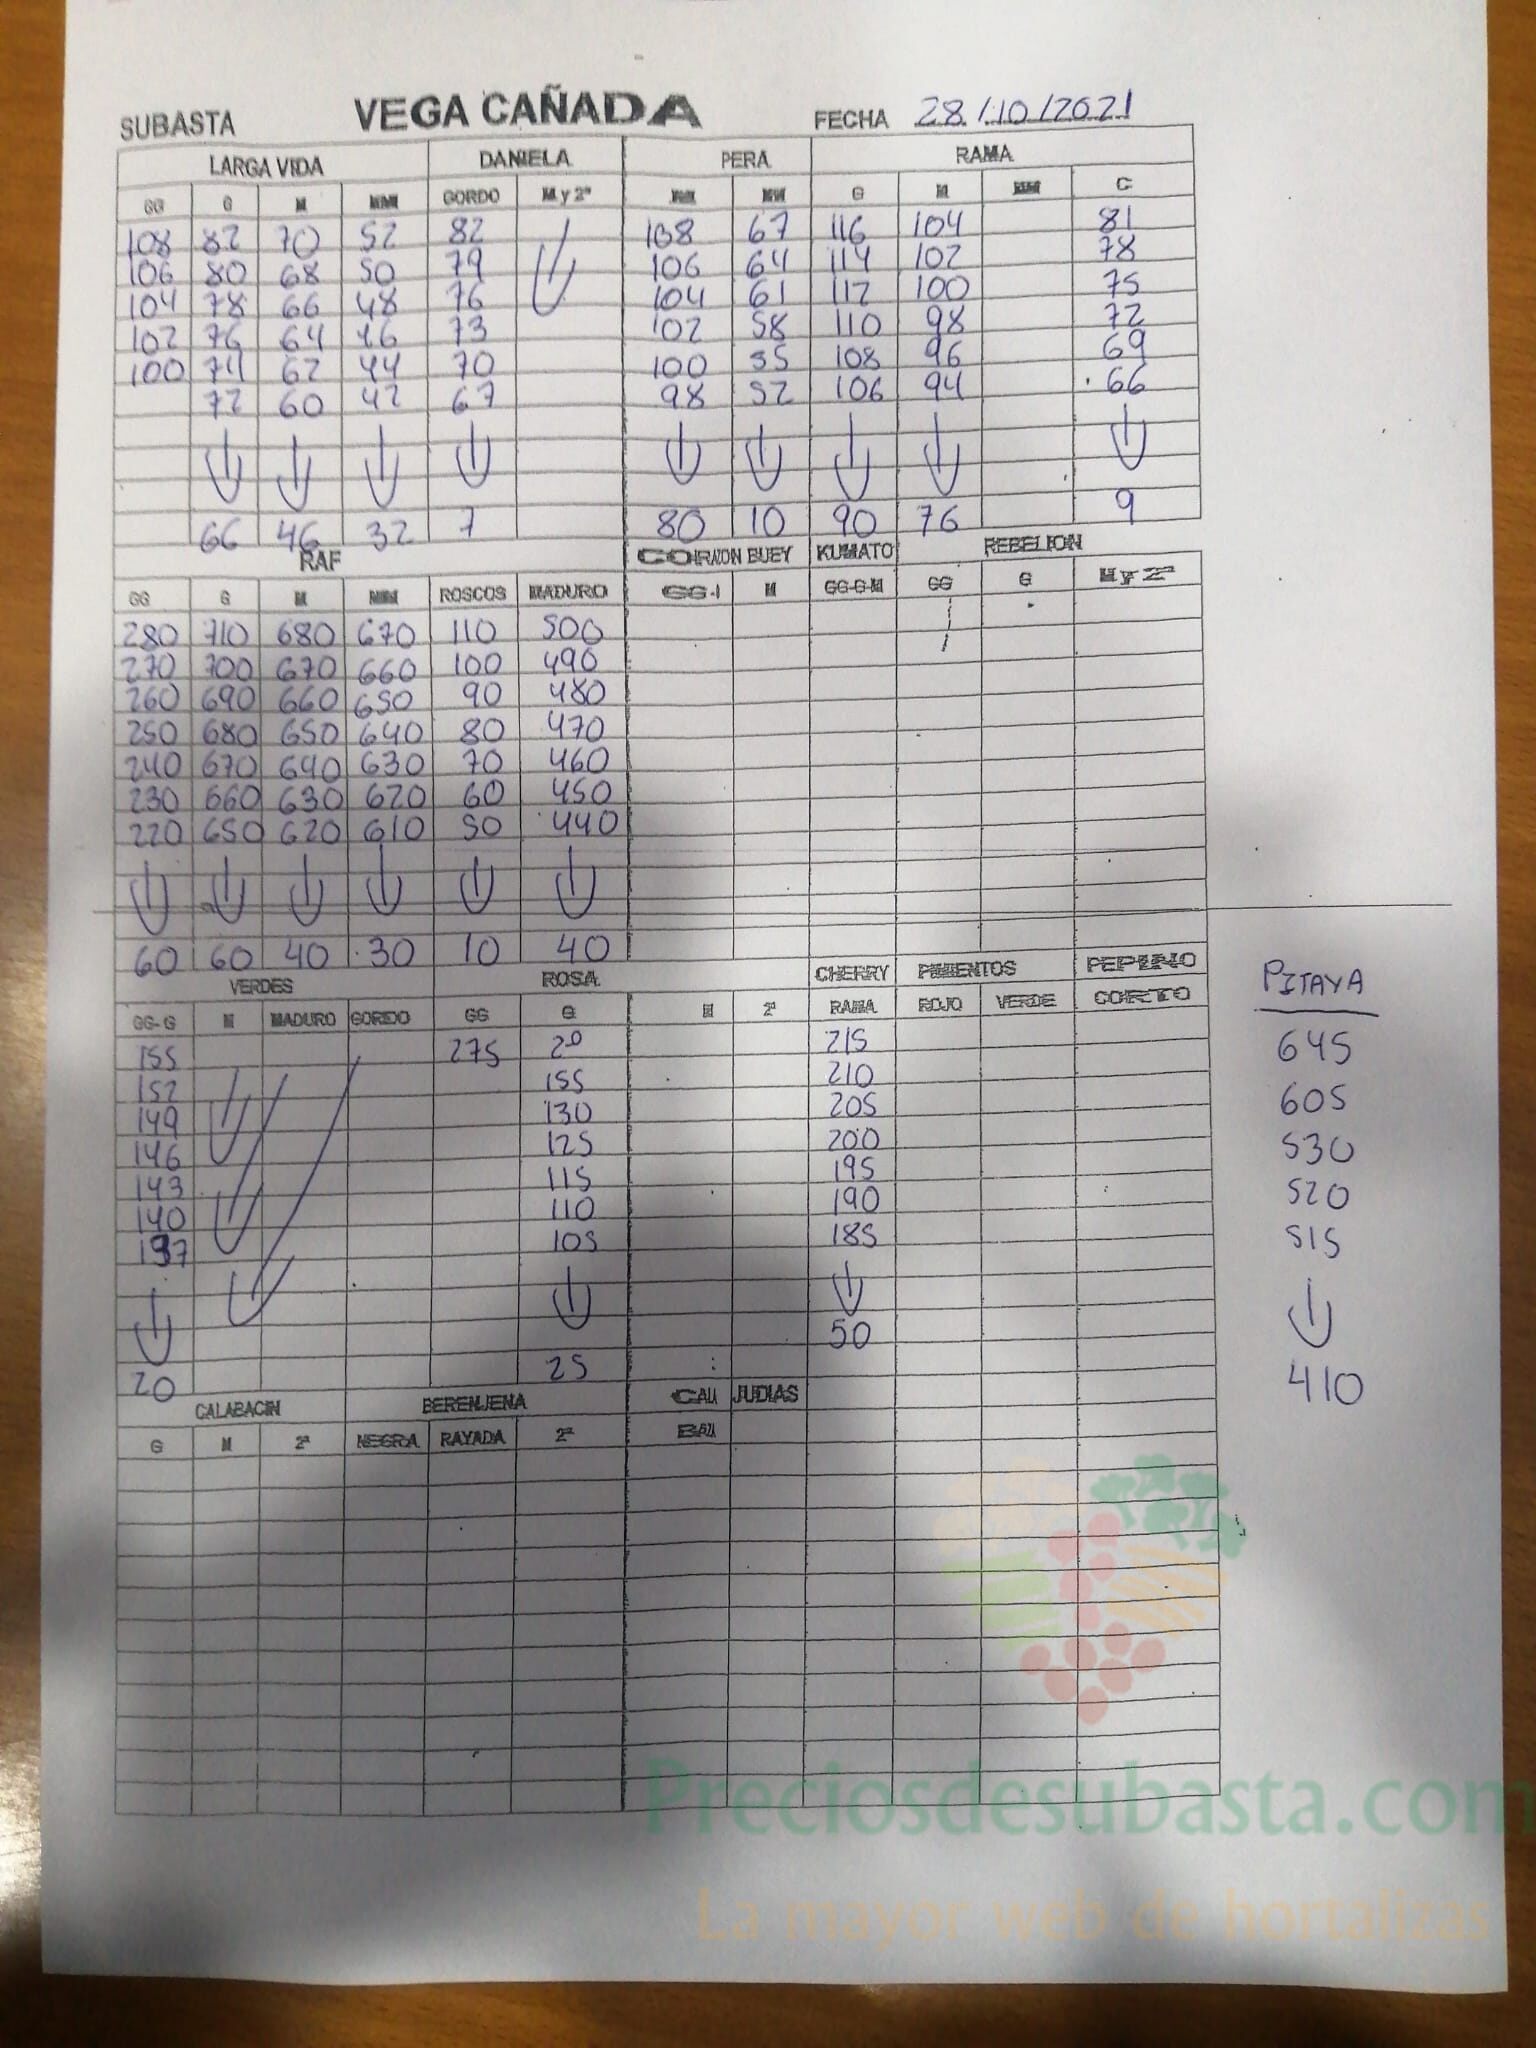 SUBASTA VEGA CAÑADA FECHA 28/10/2021
LARGA VIDA DANIELA PERA RAMA
GG G M MM GORDO M y 2ª G M C
108 82 70 52 82 108 67 116 104 81
106 80 68 50 79 106 64 114 102 78
104 78 66 48 76 104 61 112 100 75
102 76 64 46 73 102 58 110 98 72
100 74 62 44 70 100 55 108 96 69
72 60 42 67 98 52 106 94 66
66 46 32 7 80 10 90 76 9
RAF CORAZON BUEY KUMATO REBELION
GG G M MM ROSCOS MADURO GG-I M GG-G-M GG G M y 2ª
280 710 680 670 110 500
270 700 670 660 100 490
260 690 660 650 90 480
250 680 650 640 80 470
240 670 640 630 70 460
230 660 630 620 60 450
220 650 620 610 50 440
60 60 40 30 10 40
VERDES ROSA CHERRY PIMIENTOS PEPINO
GG-G M MADURO GORDO GG G M 2ª RAMA ROJO VERDE CORTO
155 275 215
152 155 210
149 130 205
146 125 200
143 115 195
140 110 190
137 105 185
50
20 25
PITAYA
645
605
530
520
515
410
CALABACIN BERENJENA CALA JUDIAS
G M 2ª NEGRA RAYADA 2ª
Preciosdesubasta.com
La mayor web de hortalizas